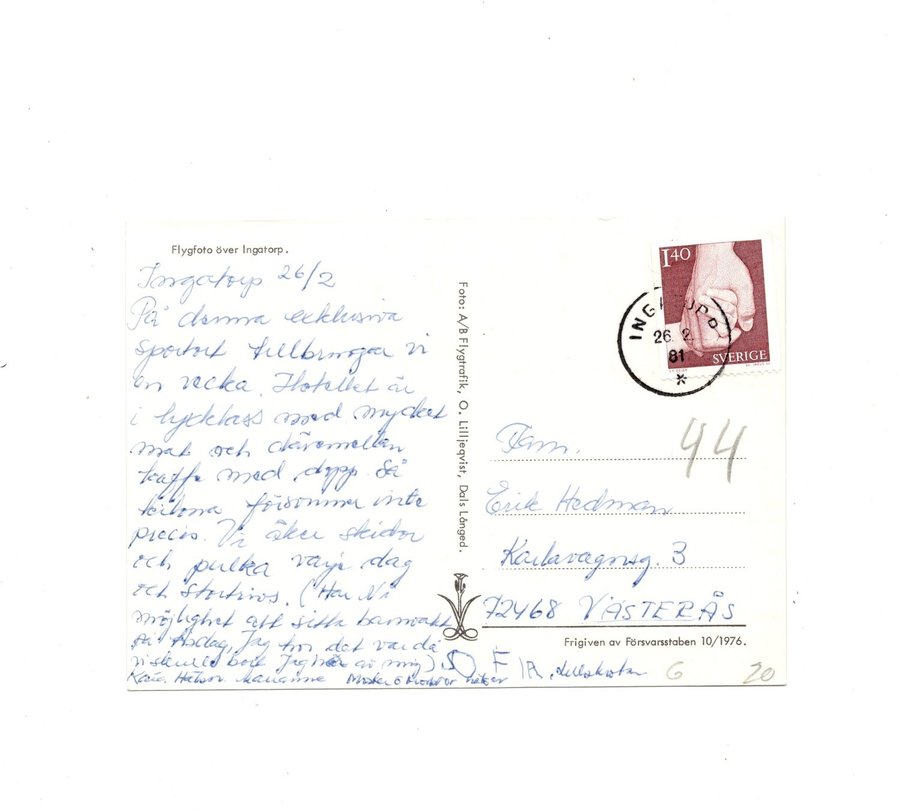 Flygfoto över Ingatorp.
Ingatorp 26/2
På denna exklusiva
sportort tillbringar vi
en vecka. Hotellet är
i lyxklass med mycket
mat och däremellan
kaffe med dopp. Så
kilona försvinner inte
precis. Vi åker skidor
och pulka varje dag
och stortrivs. (Har Ni
möjlighet att sitta barnvakt
på tisdag, Jag tror det var då
vi skulle bort Jag hör av mig)
Kära Hälsn. Marianne
Foto: A/B Flygtrafik, O. Lilljeqvist, Dals Långed.
1.40
SVERIGE
INGATORP
26. 2.
81
44
Fam.
Erik Hedman
Karlavagnsg. 3
72468 VÄSTERÅS
Frigiven av Försvarsstaben 10/1976.
G 20